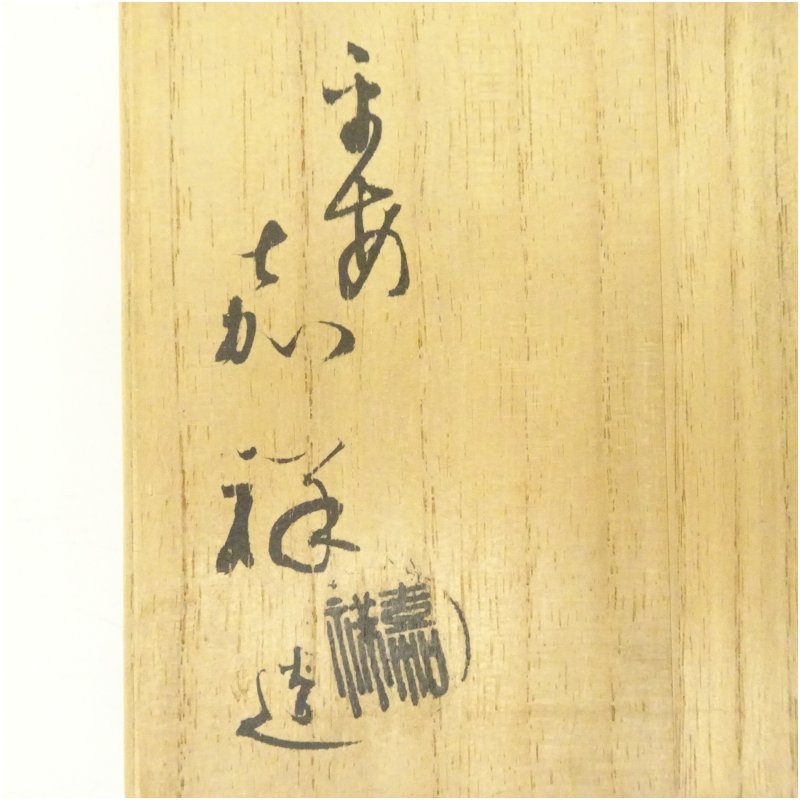 平安
嘉祥造
嘉祥